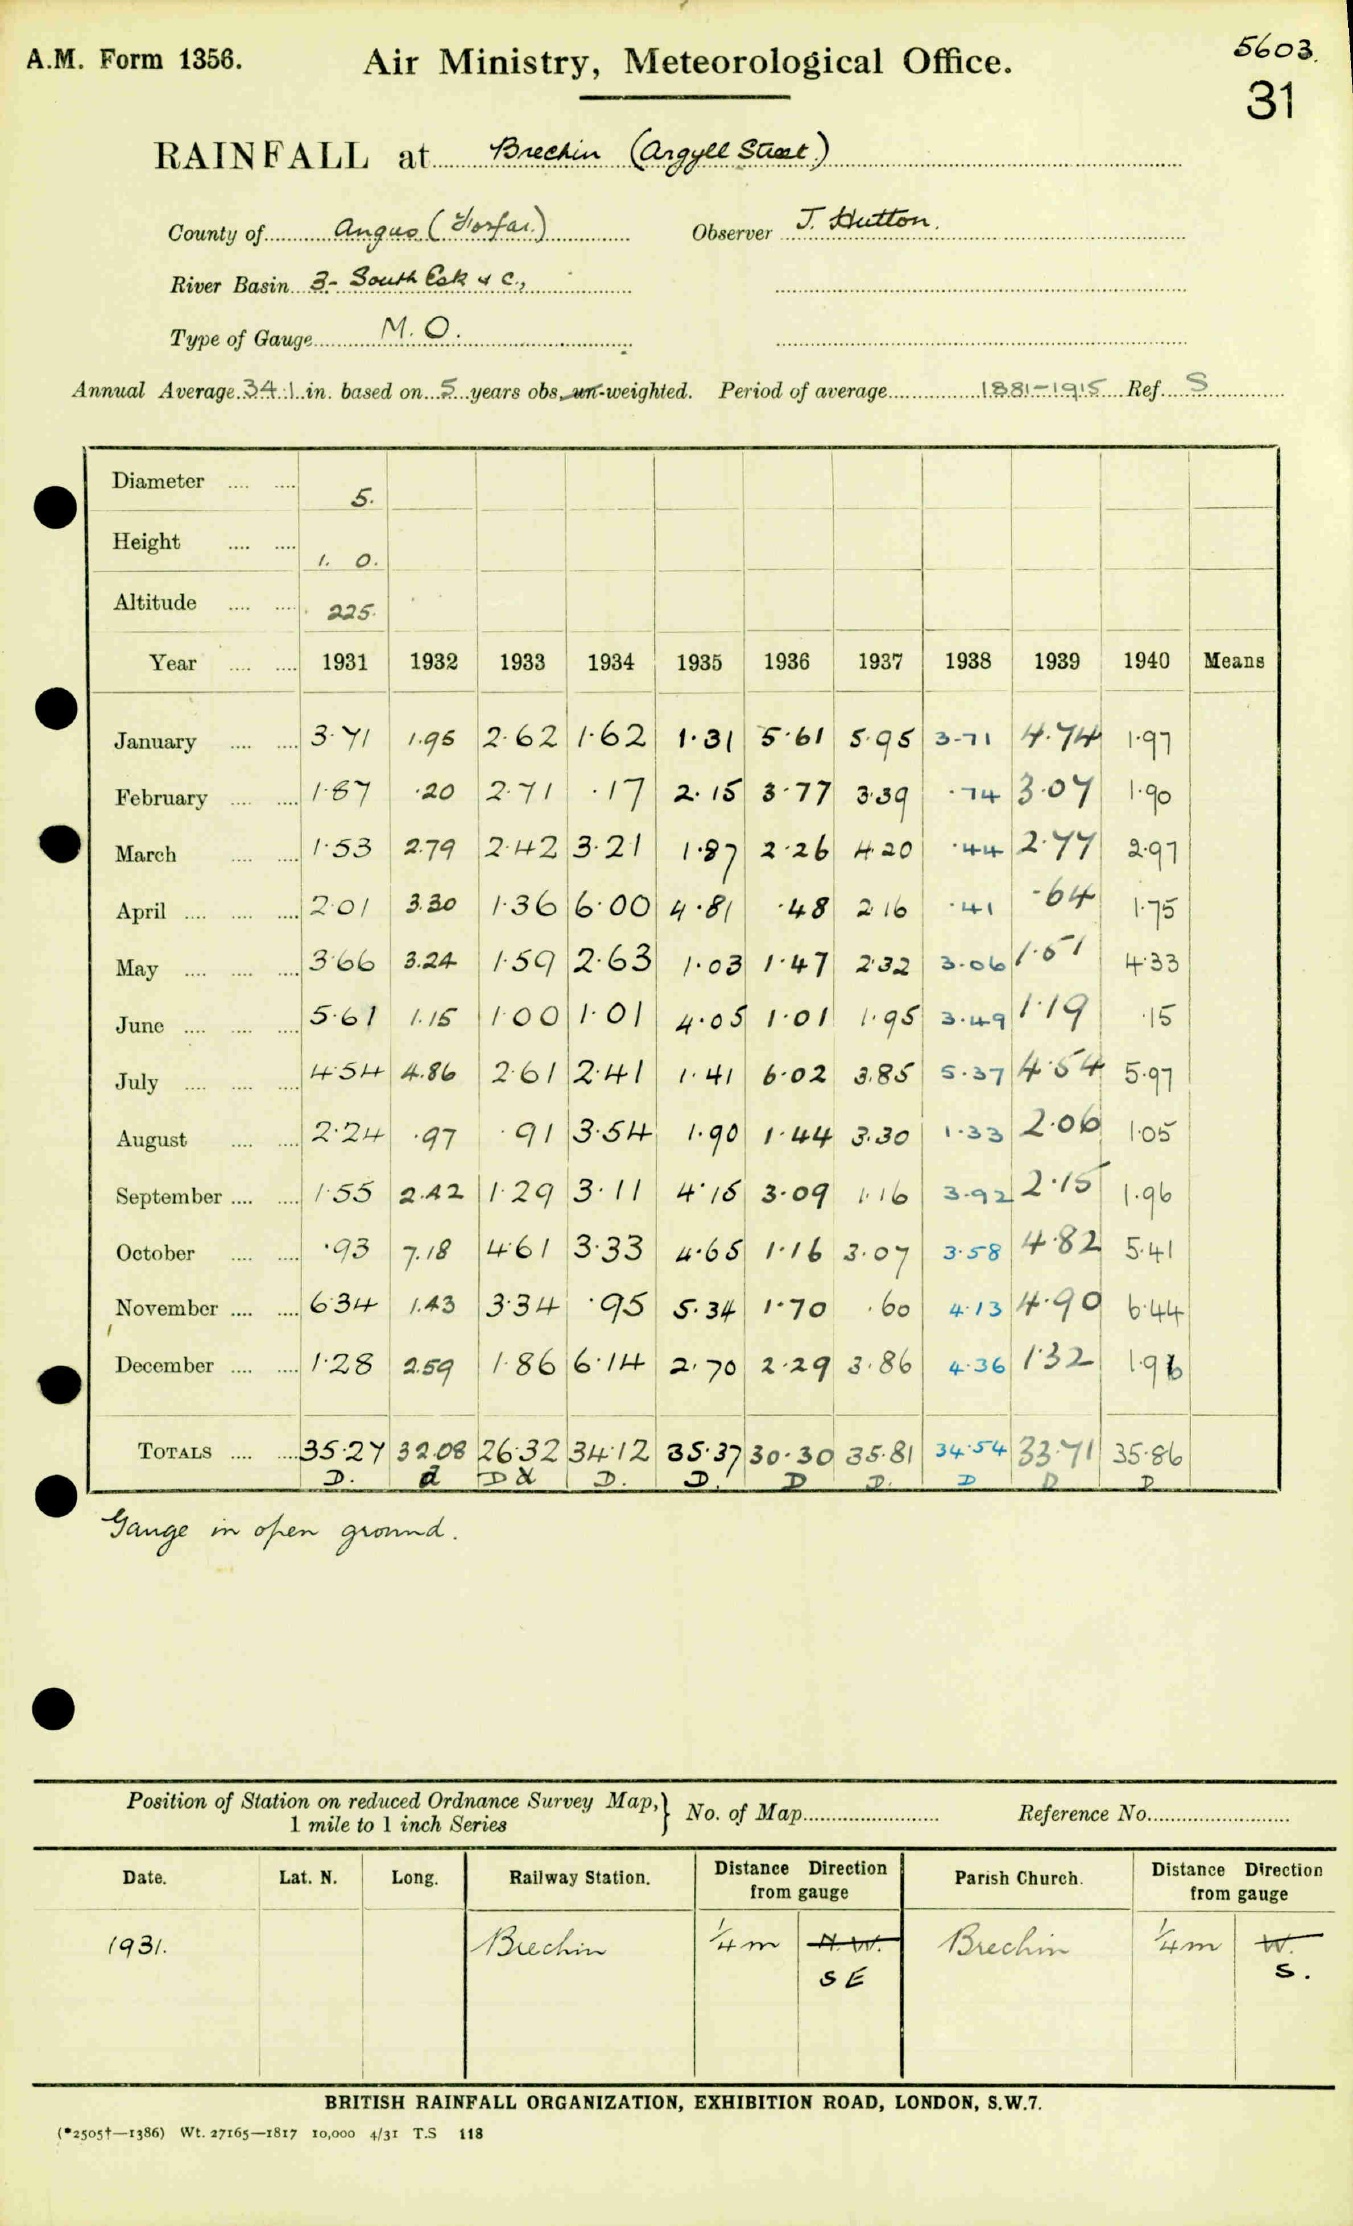 A.M. Form 1356.
Air Ministry, Meteorological Office.
5603.
31
RAINFALL at Brechin (Argyll Street.)
County of Angus (Forfar.) Observer J. Hutton.
River Basin 3 - South Esk & c.,
Type of Gauge M.O.
Annual Average 34.1 in. based on 5 years obs. un-weighted. Period of average 1881-1915 Ref. S
Diameter 5.
Height 1. 0.
Altitude 225.
Year 1931 1932 1933 1934 1935 1936 1937 1938 1939 1940 Means
January 3.71 1.95 2.62 1.62 1.31 5.61 5.95 3.71 4.74 1.97
February 1.87 .20 2.71 .17 2.15 3.77 3.39 .74 3.07 1.90
March 1.53 2.79 2.42 3.21 1.87 2.26 4.20 .44 2.77 2.97
April 2.01 3.30 1.36 6.00 4.81 .48 2.16 .41 .64 1.75
May 3.66 3.24 1.59 2.63 1.03 1.47 2.32 3.06 1.51 4.33
June 5.61 1.15 1.00 1.01 4.05 1.01 1.95 3.49 1.19 .15
July 4.54 4.86 2.61 2.41 1.41 6.02 3.85 5.37 4.54 5.97
August 2.24 .97 .91 3.54 1.90 1.44 3.30 1.33 2.06 1.05
September 1.55 2.42 1.29 3.11 4.15 3.09 1.16 3.92 2.15 1.96
October .93 7.18 4.61 3.33 4.65 1.16 3.07 3.58 4.82 5.41
November 6.34 1.43 3.34 .95 5.34 1.70 .60 4.13 4.90 6.44
December 1.28 2.59 1.86 6.14 2.70 2.29 3.86 4.36 1.32 1.96
TOTALS 35.27 32.08 26.32 34.12 35.37 30.30 35.81 34.54 33.71 35.86
D. d D d D. D. D D. D D D
Gauge in open ground.
Position of Station on reduced Ordnance Survey Map, 1 mile to 1 inch Series } No. of Map Reference No.
Date. Lat. N. Long. Railway Station. Distance Direction from gauge Parish Church. Distance Direction from gauge
1931. Brechin 1/4 m N.W. Brechin 1/4 m W.
SE S.
BRITISH RAINFALL ORGANIZATION, EXHIBITION ROAD, LONDON, S.W.7.
(*2505†—1386) Wt. 27165—1817 10,000 4/31 T.S 118